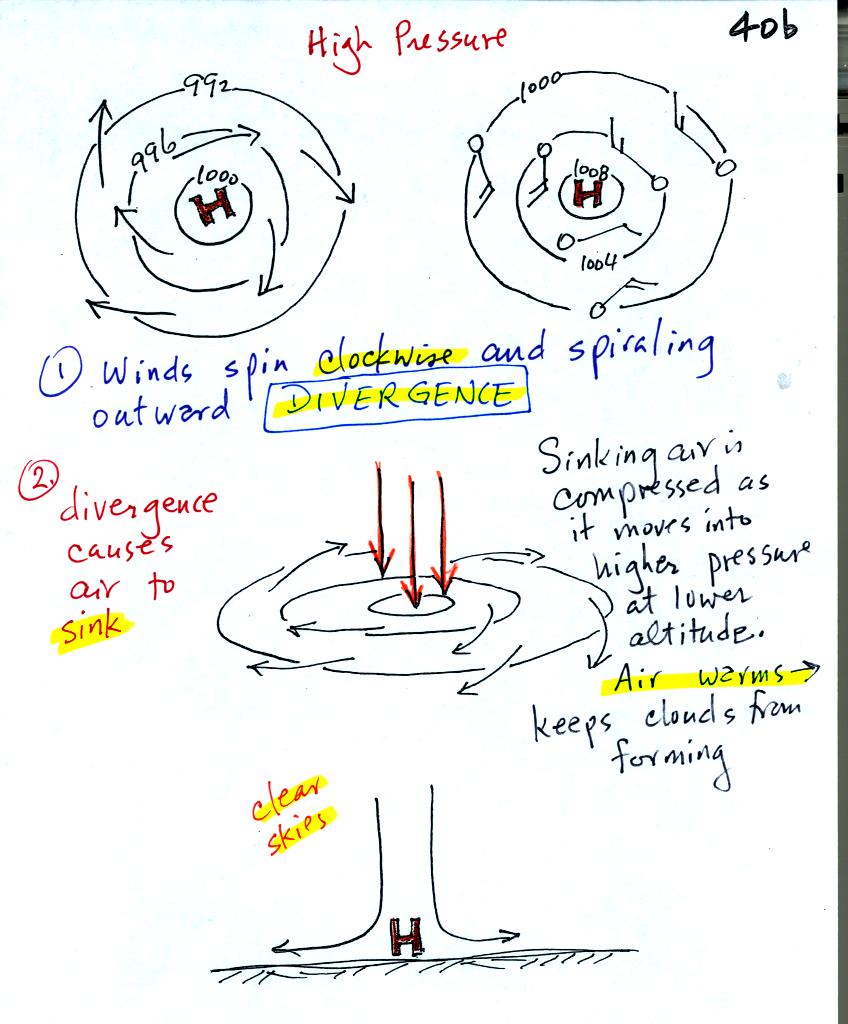 40b
High Pressure
992
996
1000
H
1000
1008
H
1004
① Winds spin clockwise and spiraling
outward DIVERGENCE
②. divergence
causes
air to
sink
Sinking air is
compressed as
it moves into
higher pressure
at lower
altitude.
Air warms →
keeps clouds from
forming
clear
skies
H